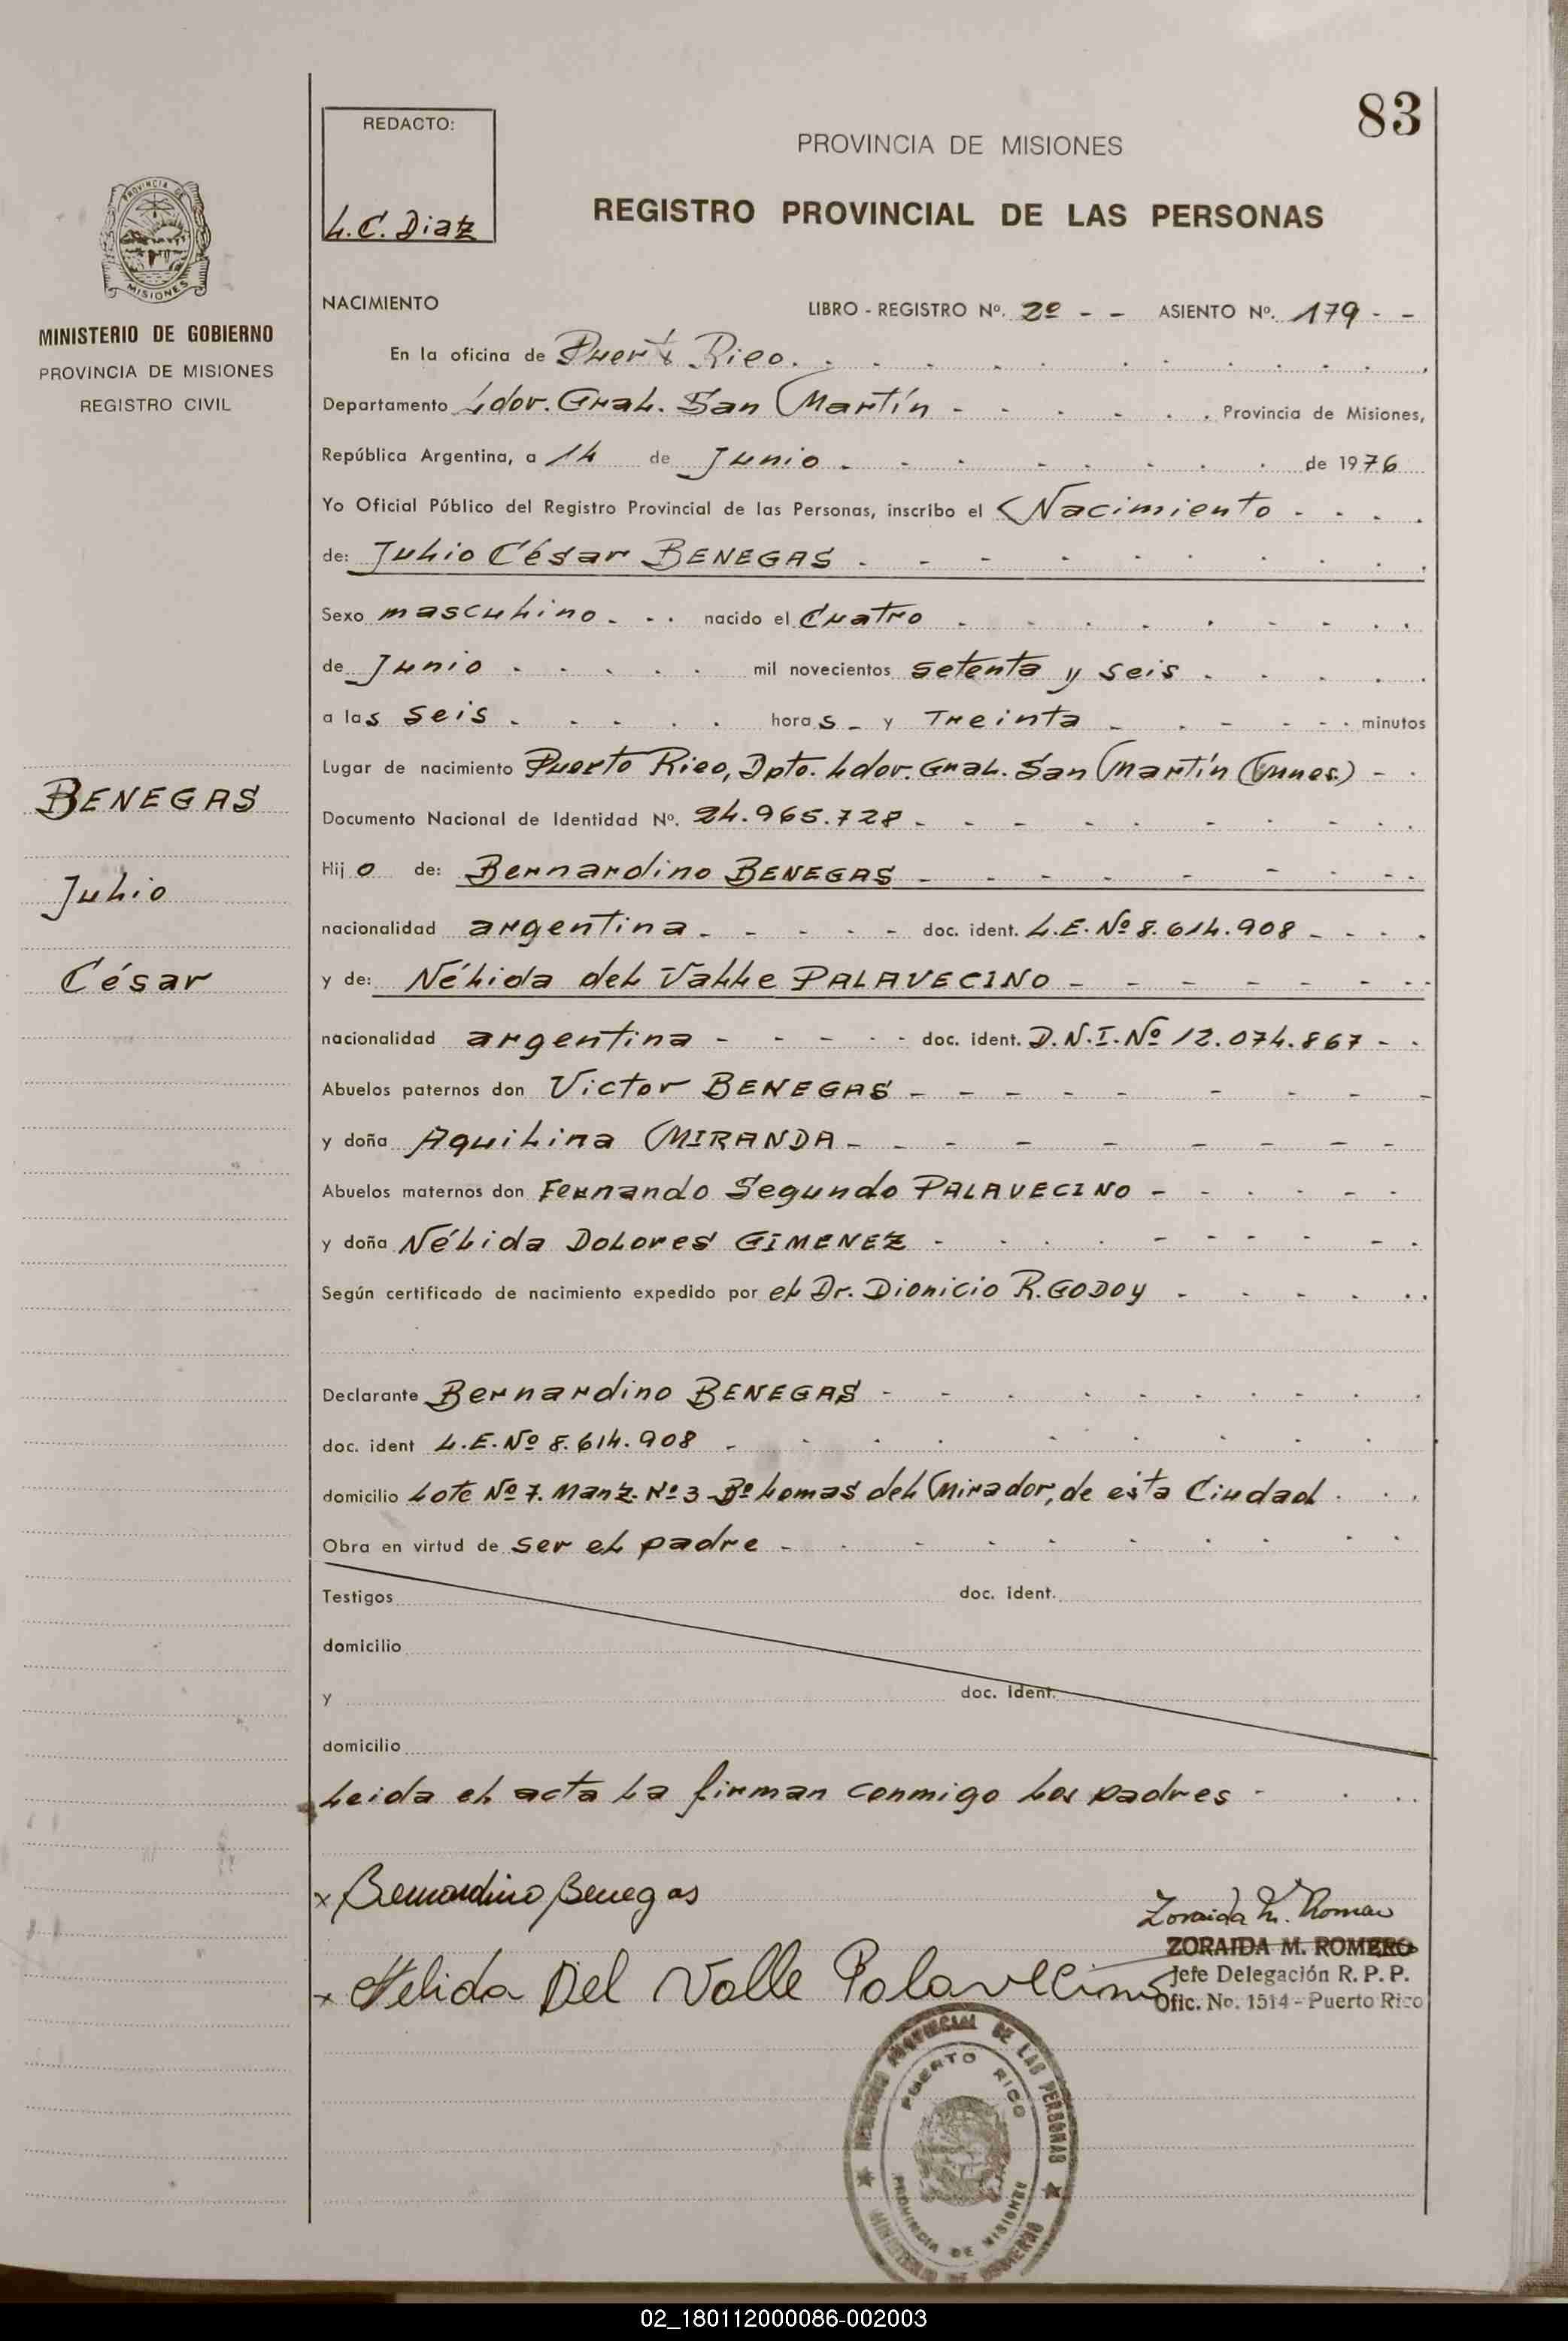 83
REDACTO:
L.C. Diaz
PROVINCIA DE MISIONES
REGISTRO PROVINCIAL DE LAS PERSONAS
PROVINCIA DE
MISIONES
MINISTERIO DE GOBIERNO
PROVINCIA DE MISIONES
REGISTRO CIVIL
NACIMIENTO LIBRO - REGISTRO Nº. 2º - - ASIENTO Nº. 179 - -
En la oficina de Puerto Rico.
Departamento Ldor. Gral. San Martín - Provincia de Misiones,
República Argentina, a 14 de Junio de 1976
Yo Oficial Público del Registro Provincial de las Personas, inscribo el Nacimiento
de: Julio César BENEGAS
Sexo masculino nacido el Cuatro
de Junio mil novecientos setenta y seis
a las seis horas y Treinta minutos
Lugar de nacimiento Puerto Rico, Dpto. Ldor. Gral. San Martín (Mnes.)
Documento Nacional de Identidad Nº. 24.965.728
Hijo de: Bernardino BENEGAS
nacionalidad argentina doc. ident. L.E. Nº 8.614.908
y de: Nélida del Valle PALAVECINO
nacionalidad argentina doc. ident. D.N.I. Nº 12.074.867
Abuelos paternos don Victor BENEGAS
y doña Aquilina MIRANDA
Abuelos maternos don Fernando Segundo PALAVECINO
y doña Nélida Dolores GIMENEZ
Según certificado de nacimiento expedido por el Dr. Dionicio R. GODOY
BENEGAS
Julio
César
Declarante Bernardino BENEGAS
doc. ident L.E. Nº 8.614.908
domicilio Lote Nº 7. Manz. Nº 3 Bº Lomas del Mirador, de esta Ciudad
Obra en virtud de ser el padre
Testigos doc. ident.
domicilio
y doc. ident.
domicilio
Leida el acta la firman conmigo los padres
x Bernardino Benegas
Zoraida M. Romero
ZORAIDA M. ROMERO
Jefe Delegación R. P. P.
Ofic. No. 1514 - Puerto Rico
x Nelida Del Valle Palavecino
REGISTRO PROVINCIAL DE LAS PERSONAS
PUERTO RICO
PROVINCIA DE MISIONES
MINISTERIO DE GOBIERNO
02_180112000086-002003